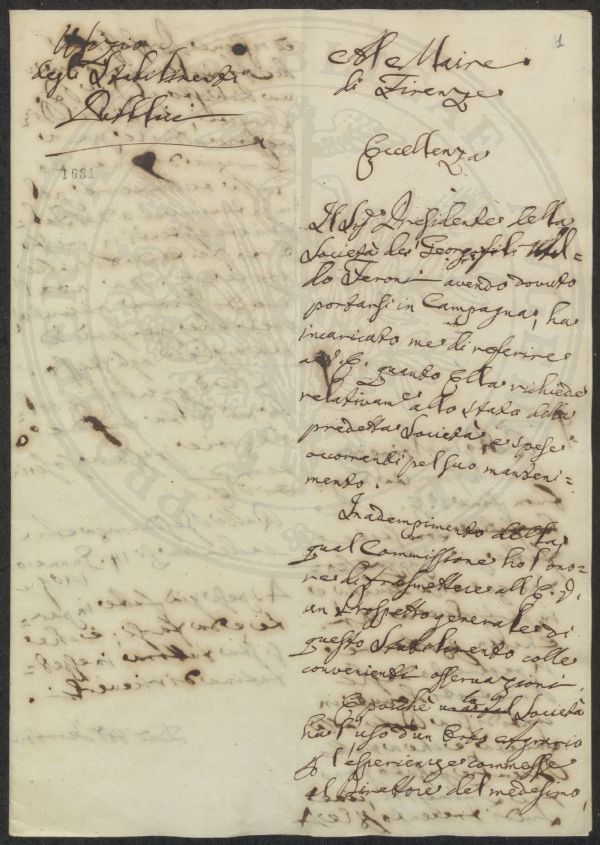 Ufizio
degli Stabilimenti
Pubblici
1681
1
Al Maire
di Firenze
Eccellenza
Il Sig. Presidente della
Società dei Georgofili Ubal=
do Feroni avendo dovuto
portarsi in Campagna, ha
incaricato me di referire
a V. E. quanto Ella richiede
relativam.e allo stato della
predetta Società, e spese
occorrenti pel suo manteni=
mento.
In adempimento della
qual Commissione ho l'ono=
re di trasmettere all'E. V.
un Prospetto generale di
questo Stabilimento colle
convenienti osservazioni.
E poichè la Società
ha l'uso d'un Orto agrario
p. l'esperienze commesse
al Direttore del medesimo,